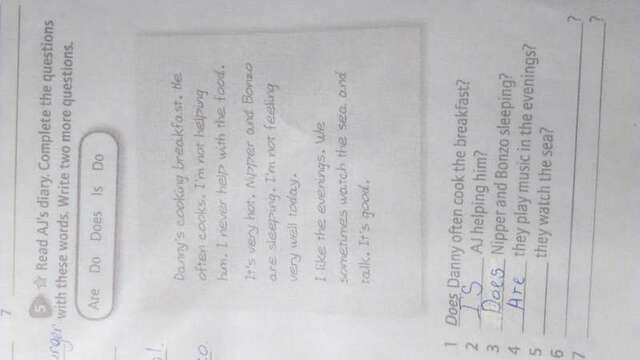 7
5 ☆ Read AJ's diary. Complete the questions
with these words. Write two more questions.
Are Do Does Is Do
Danny's cooking breakfast. He
often cooks. I'm not helping
him. I never help with the food.
It's very hot. Nipper and Bonzo
are sleeping. I'm not feeling
very well today.
I like the evenings. We
sometimes watch the sea and
talk. It's good.
1 Does Danny often cook the breakfast?
2 IS AJ helping him?
3 Does Nipper and Bonzo sleeping?
4 Are they play music in the evenings?
5 they watch the sea?
6 ?
7 ?